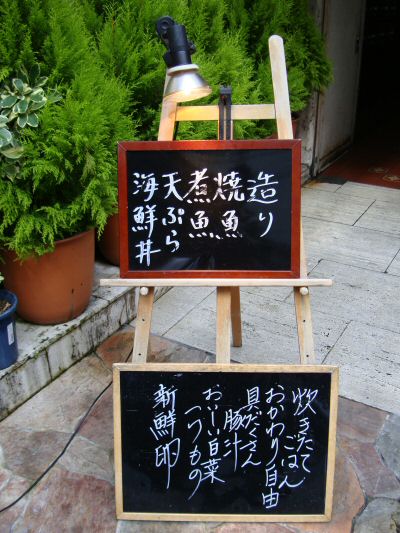 造り
焼魚
煮魚
天ぷら
海鮮丼
炊きたて
ごはん
おかわり自由
具だくさん
豚汁
おいしい白菜
つけもの
新鮮卵